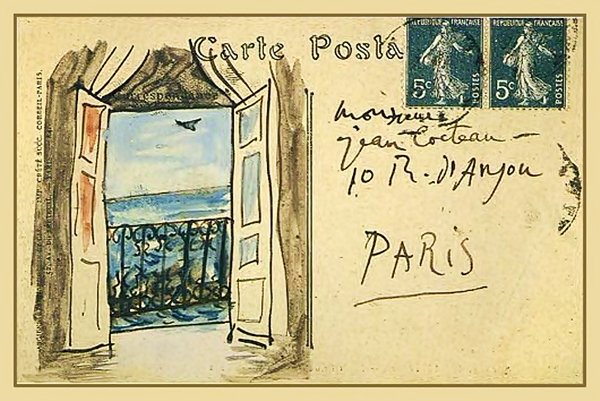 REPUBLIQUE FRANÇAISE
REPUBLIQUE FRANÇAISE
5c
POSTES
5c
POSTES
Carte Posta
monsieur
jean Cocteau -
10 R. d'Anjou
PARIS
IMP. CRÉTÉ SUCC. CORBEIL-PARIS.